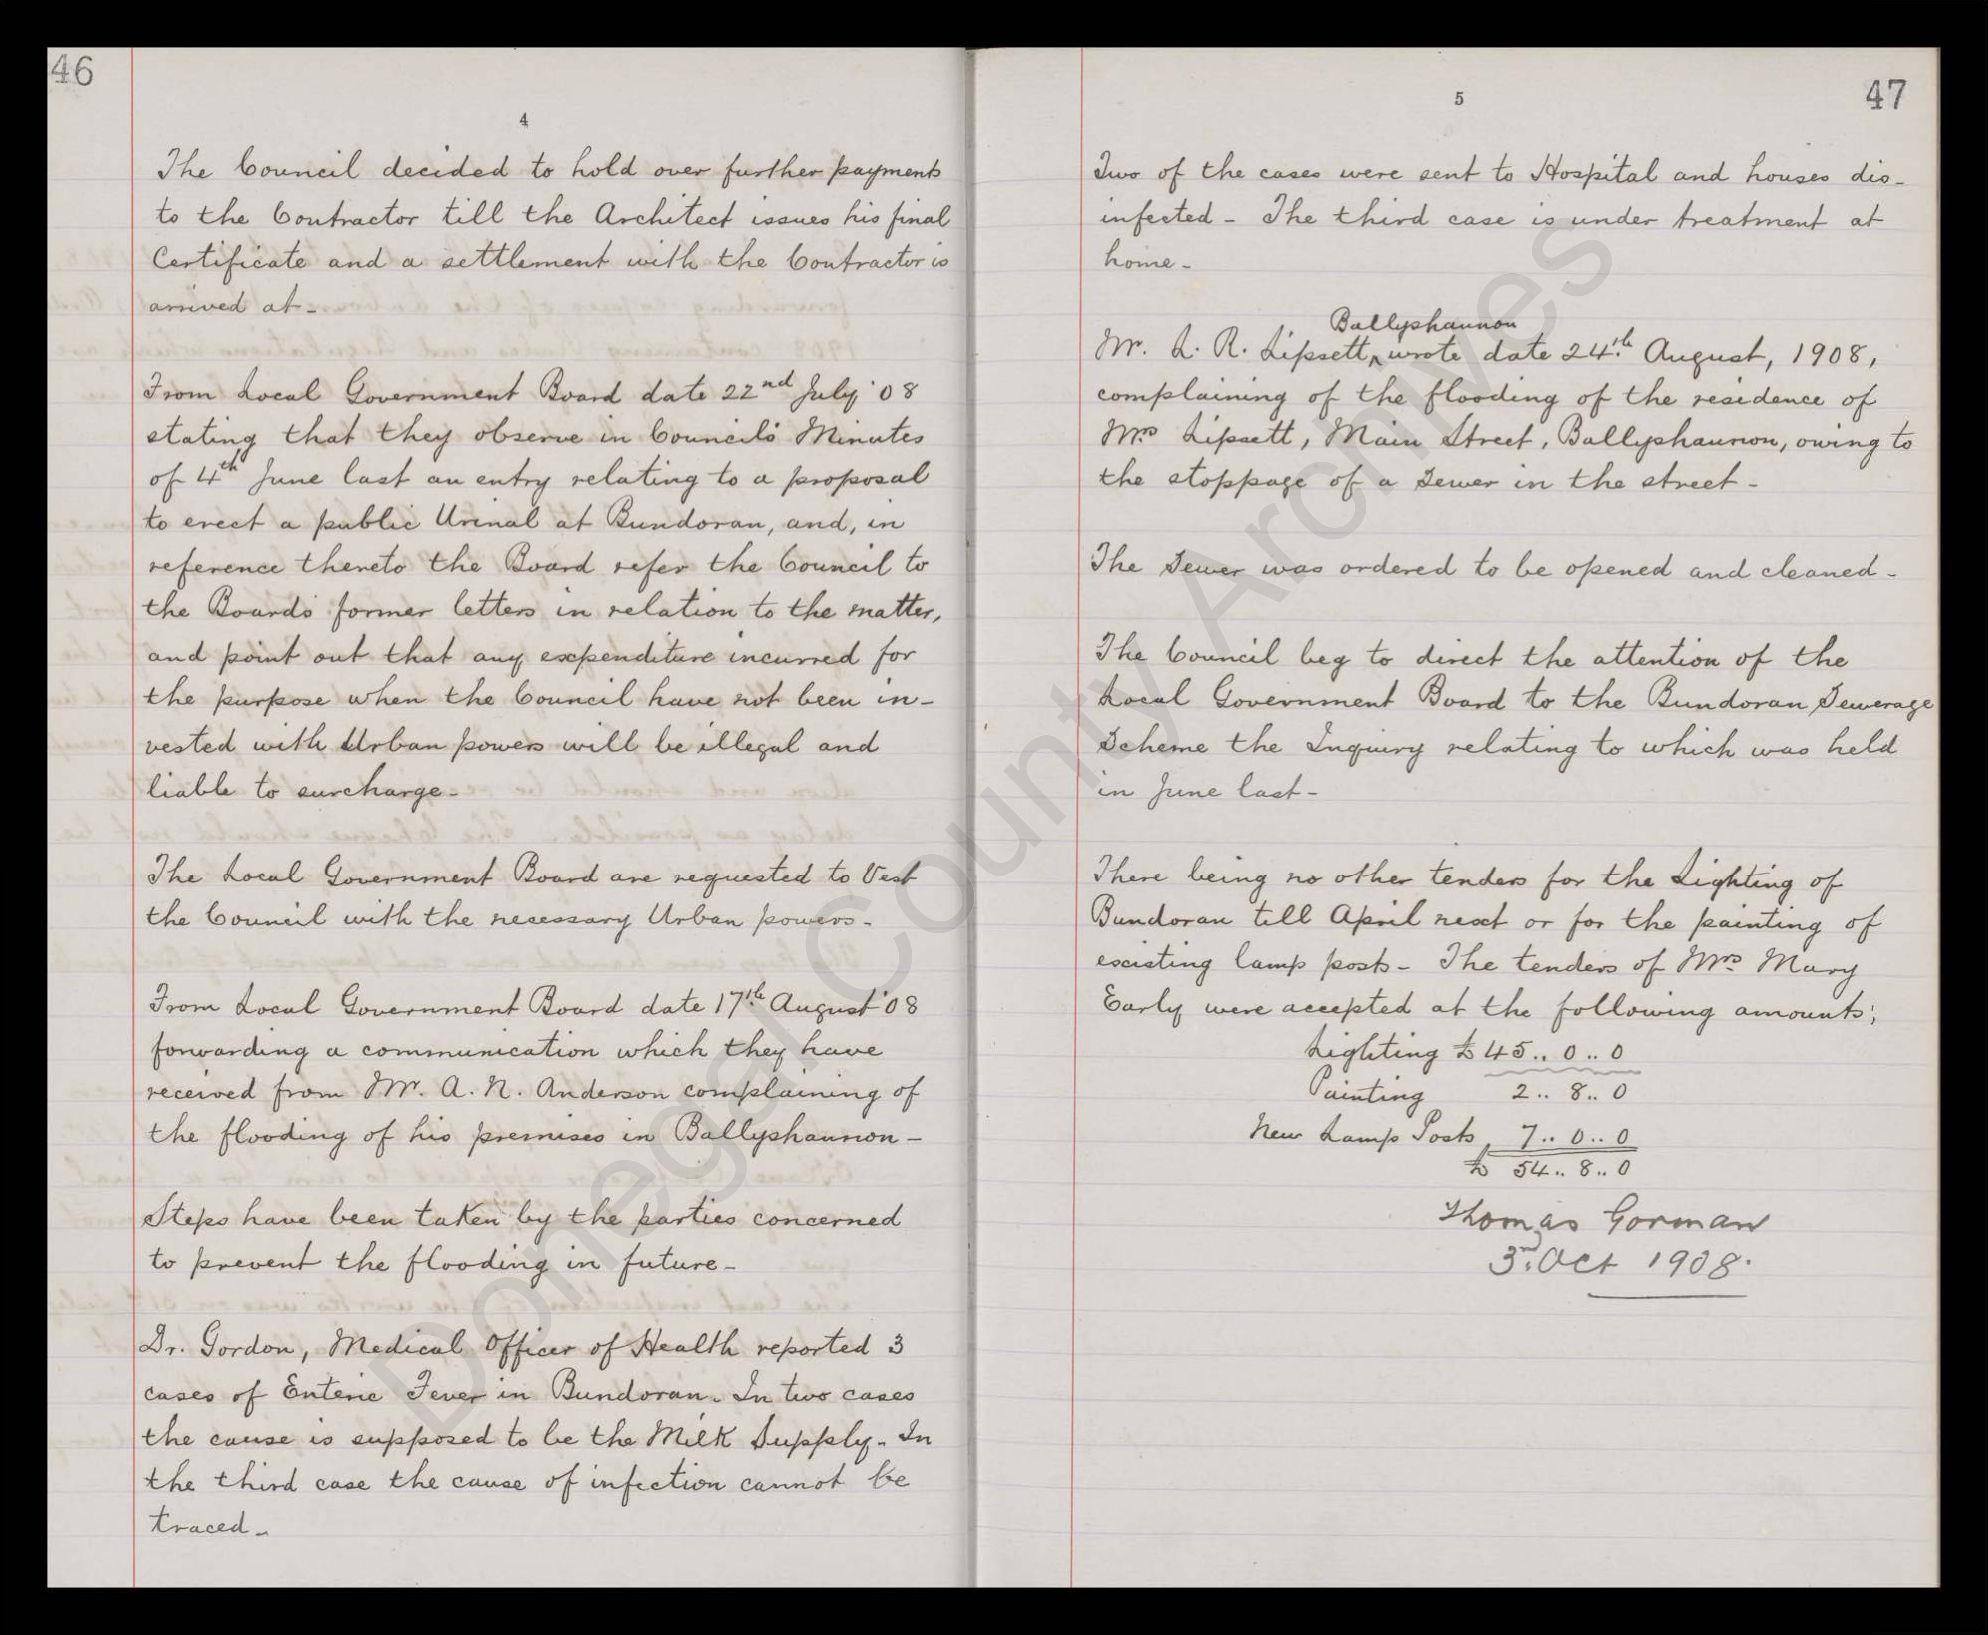 46
4
The Council decided to hold over further payments
to the Contractor till the Architect issues his final
Certificate and a settlement with the Contractor is
arrived at -
From Local Government Board date 22nd July '08
stating that they observe in Council's Minutes
of 4th June last an entry relating to a proposal
to erect a public Urinal at Bundoran, and, in
reference thereto the Board refer the Council to
the Board's former letters in relation to the matter,
and point out that any expenditure incurred for
the purpose when the Council have not been in-
vested with Urban powers will be illegal and
liable to surcharge -
The Local Government Board are requested to Vest
the Council with the necessary Urban powers -
From Local Government Board date 17th August '08
forwarding a communication which they have
received from Mr. A. N. Anderson complaining of
the flooding of his premises in Ballyshannon -
Steps have been taken by the parties concerned
to prevent the flooding in future -
Dr. Gordon, Medical Officer of Health reported 3
cases of Enteric Fever in Bundoran. In two cases
the cause is supposed to be the Milk Supply. In
the third case the cause of infection cannot be
traced -
47
5
Two of the cases were sent to Hospital and houses dis-
infected - The third case is under treatment at
home -
Ballyshannon
Mr. L. R. Lipsett, wrote date 24th August, 1908,
complaining of the flooding of the residence of
Mrs Lipsett, Main Street, Ballyshannon, owing to
the stoppage of a Sewer in the street -
The Sewer was ordered to be opened and cleaned -
The Council beg to direct the attention of the
Local Government Board to the Bundoran Sewerage
Scheme the Inquiry relating to which was held
in June last -
There being no other tenders for the Lighting of
Bundoran till April next or for the painting of
existing lamp posts - The tenders of Mrs Mary
Early were accepted at the following amounts;
Lighting £ 45 .. 0 .. 0
Painting 2 .. 8 .. 0
New Lamp Posts, 7 .. 0 .. 0
£ 54 .. 8 .. 0
Thomas Gorman
3rd Oct 1908.
Donegal County Archives